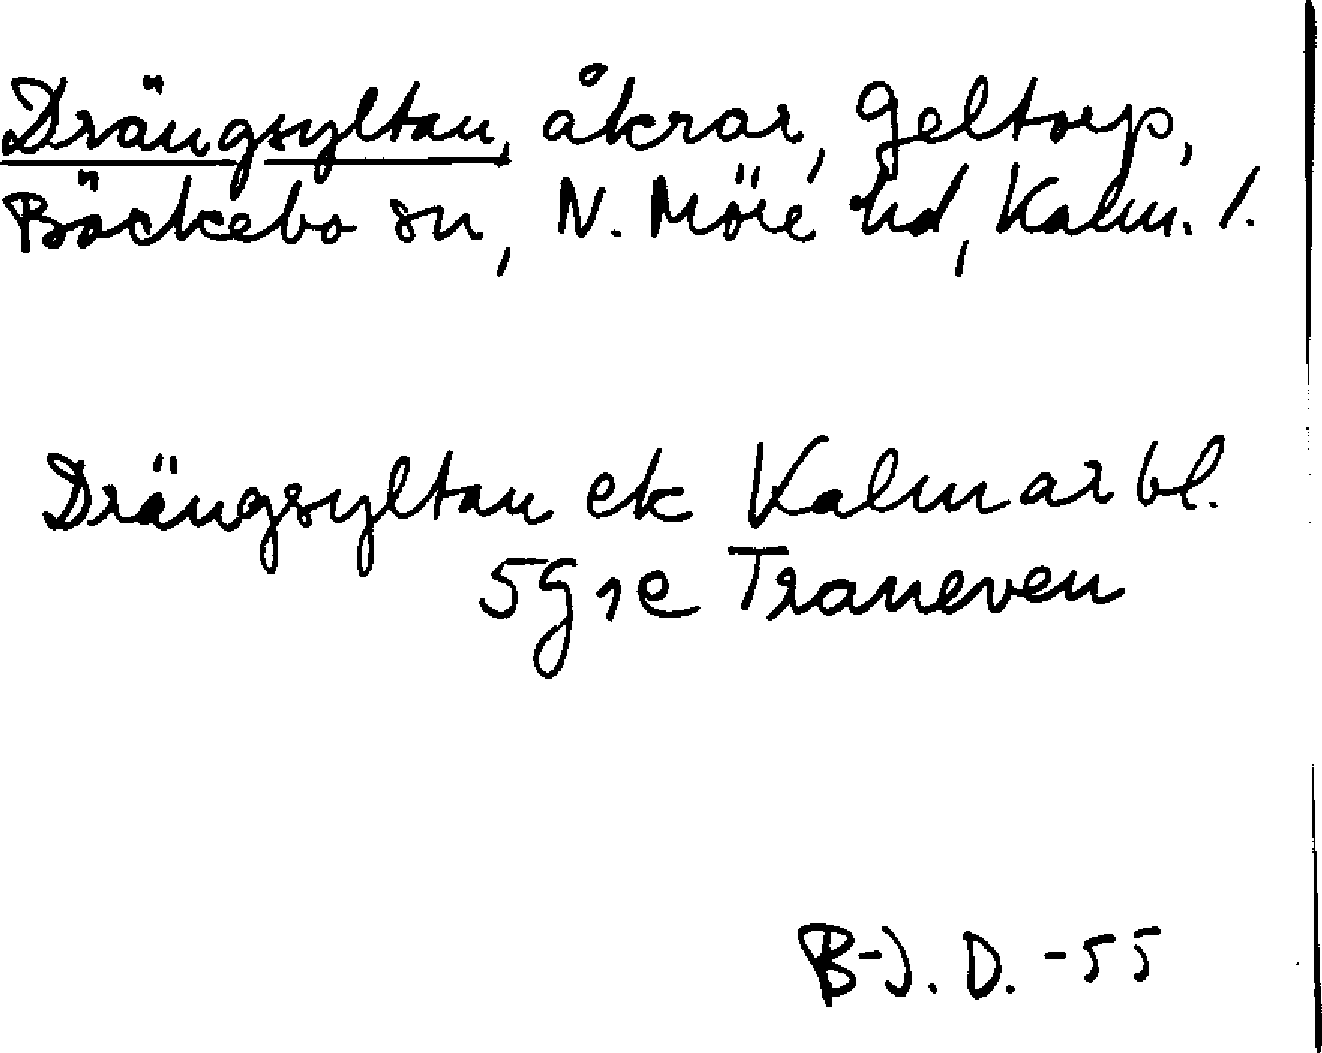 Drängsyltan, åkrar, Geltorp,
Bäckebo sn, N. Möre hd, Kalm. l.
Drängsyltan ek Kalmar bl.
5G1e Traneven
B-J. D. -55